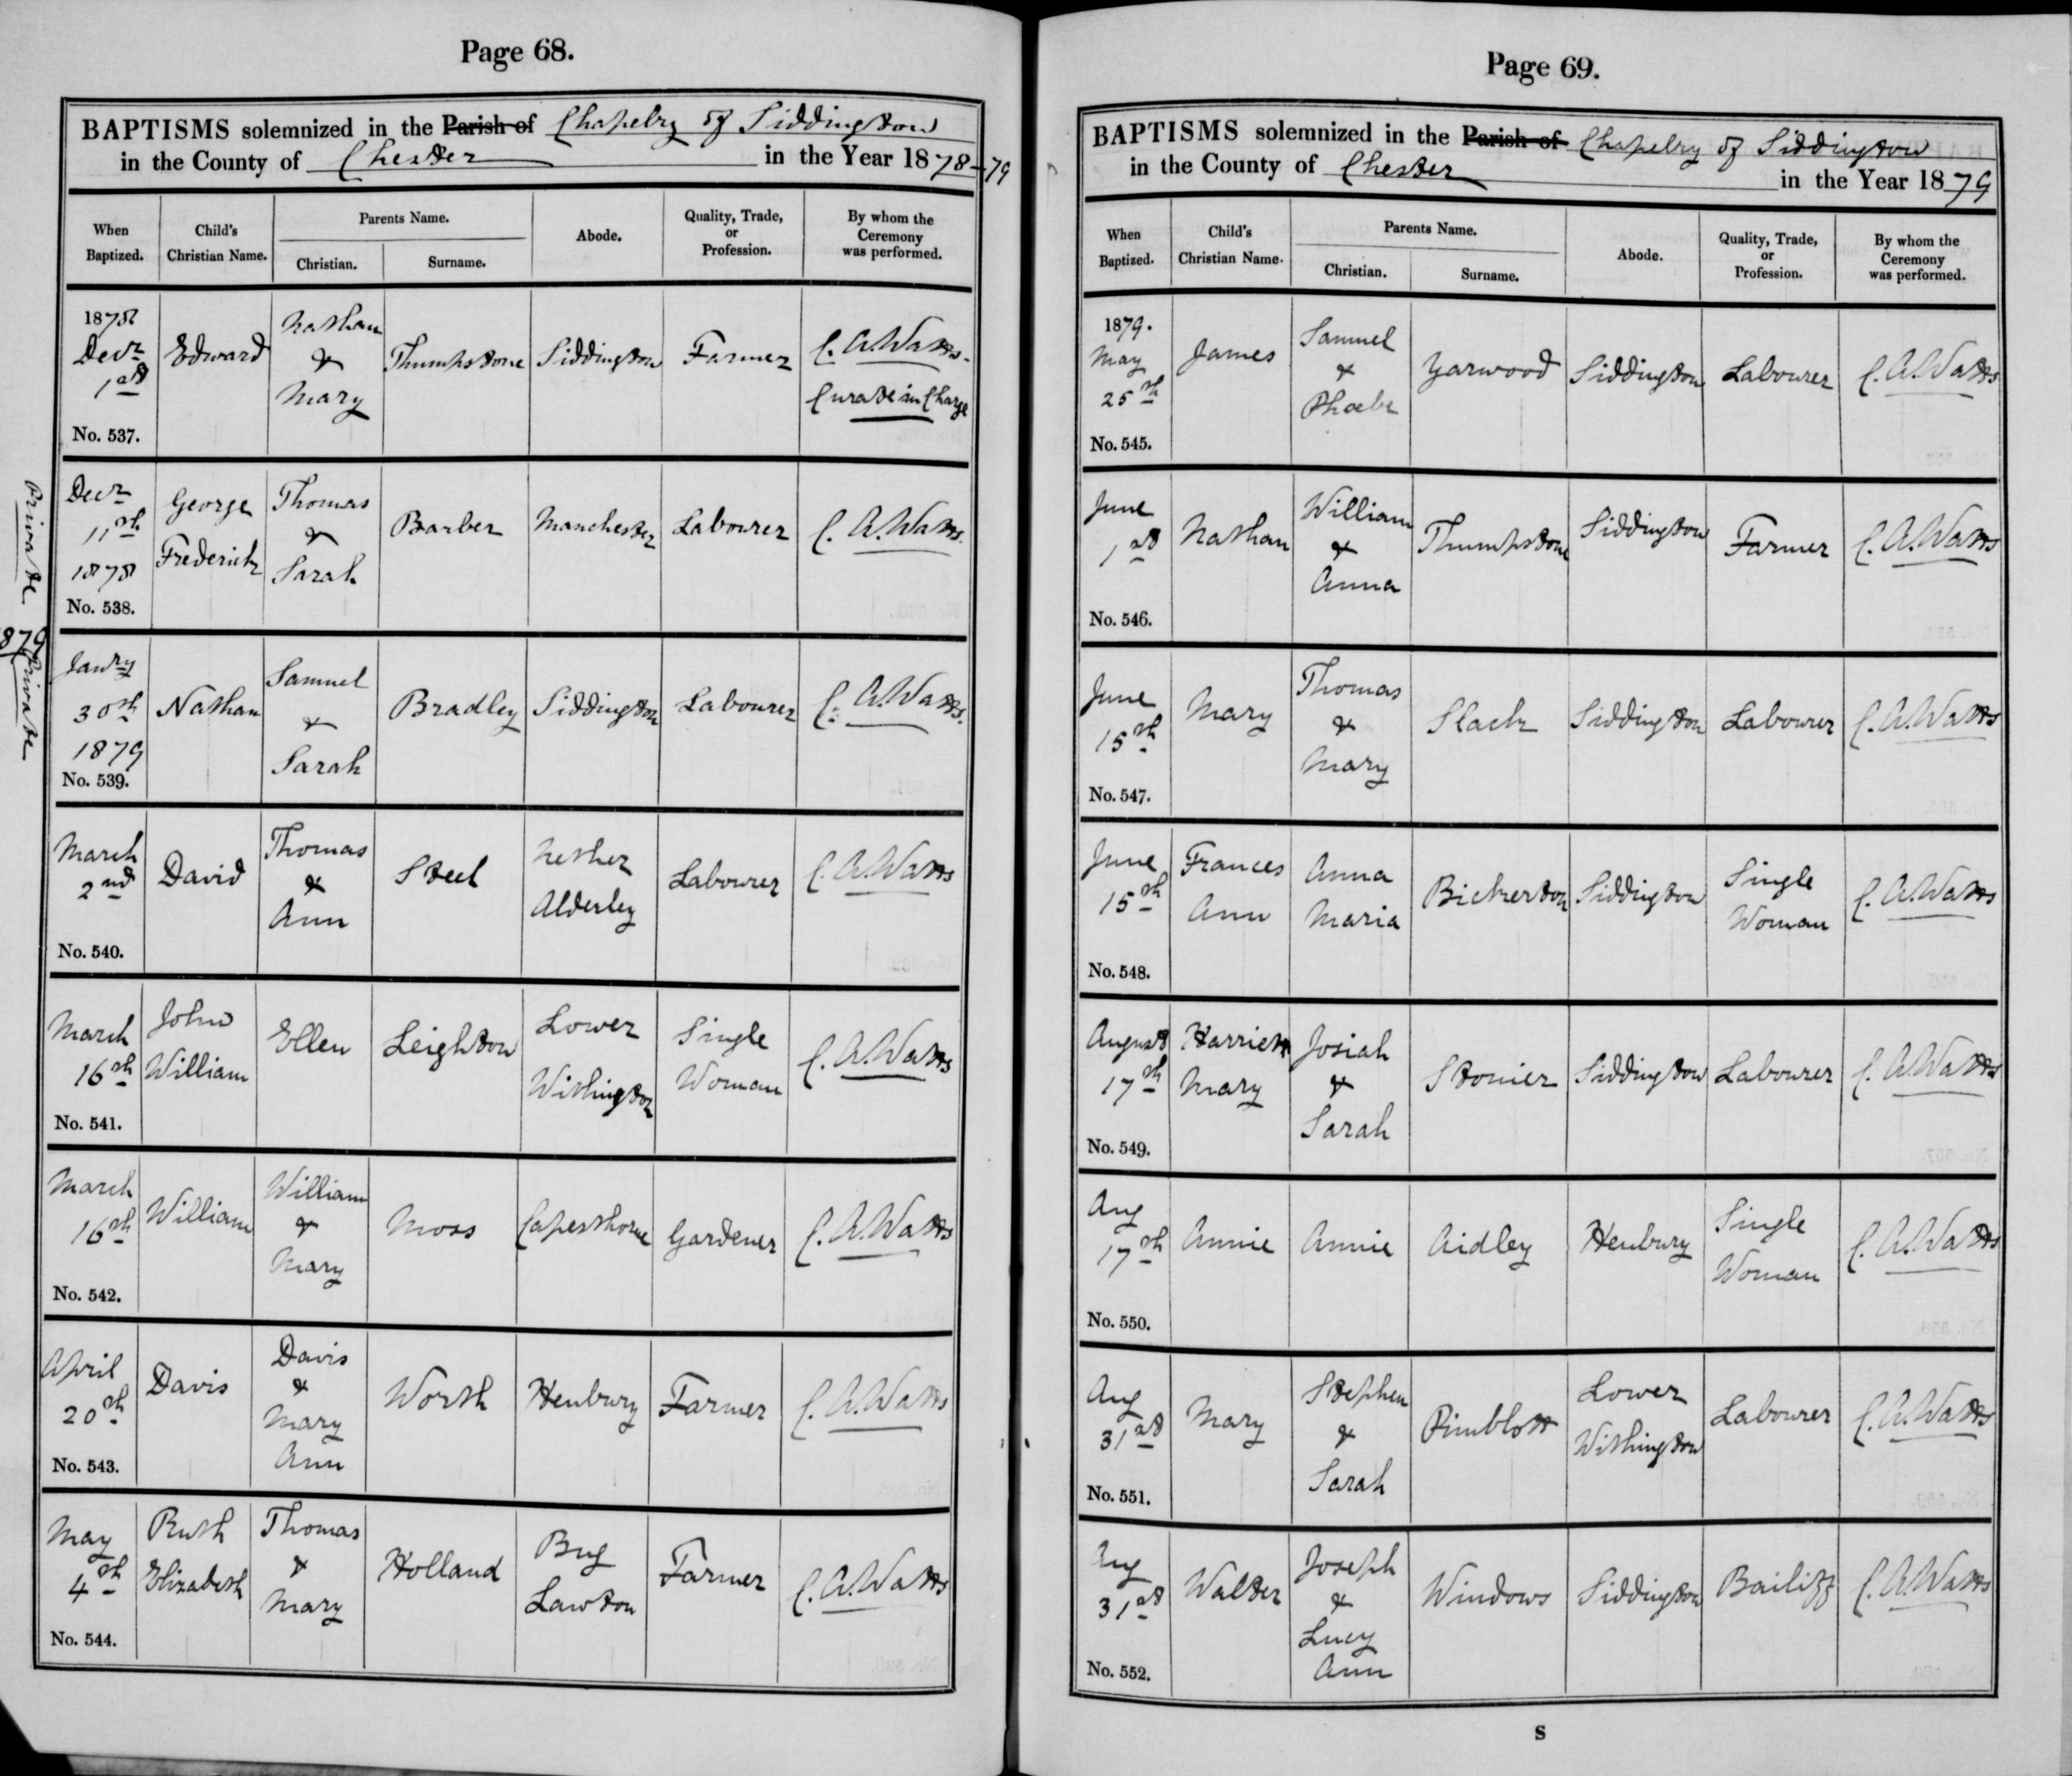 Page 68.
BAPTISMS solemnized in the Parish of Chapelry of Siddington
in the County of Chester in the Year 1878-79
When Baptized. Child's Christian Name. Parents Name. Christian. Surname. Abode. Quality, Trade, or Profession. By whom the Ceremony was performed.
1878 Decr 1st No. 537. Edward Nathan & Mary Thumpstone Siddington Farmer C. A. Watts. Curate in Charge
Private Decr 11th 1878 No. 538. George Frederick Thomas & Sarah Barber Manchester Labourer C. A. Watts.
1879 Private Janry 30th 1879 No. 539. Nathan Samuel & Sarah Bradley Siddington Labourer C. A. Watts.
March 2nd No. 540. David Thomas & Ann Steel Nether Alderley Labourer C. A. Watts
March 16th No. 541. John William Ellen Leighton Lower Withington Single Woman C. A. Watts
March 16th No. 542. William William & Mary Moss Capesthorne Gardener C. A. Watts
April 20th No. 543. Davis Davis & Mary Ann Worth Henbury Farmer C. A. Watts
May 4th No. 544. Ruth Elizabeth Thomas & Mary Holland Bug Lawton Farmer C. A. Watts
Page 69.
BAPTISMS solemnized in the Parish of Chapelry of Siddington
in the County of Chester in the Year 1879
When Baptized. Child's Christian Name. Parents Name. Christian. Surname. Abode. Quality, Trade, or Profession. By whom the Ceremony was performed.
1879. May 25th No. 545. James Samuel & Phoebe Yarwood Siddington Labourer C. A. Watts
June 1st No. 546. Nathan William & Anna Thumpstone Siddington Farmer C. A. Watts
June 15th No. 547. Mary Thomas & Mary Slack Siddington Labourer C. A. Watts
June 15th No. 548. Frances Ann Anna Maria Bickerton Siddington Single Woman C. A. Watts
August 17th No. 549. Harriett Mary Josiah & Sarah Stonier Siddington Labourer C. A. Watts
Aug 17th No. 550. Annie Annie Aidley Henbury Single Woman C. A. Watts
Aug 31st No. 551. Mary Stephen & Sarah Pimblott Lower Withington Labourer C. A. Watts
Aug 31st No. 552. Walter Joseph & Lucy Ann Windows Siddington Bailiff C. A. Watts
S